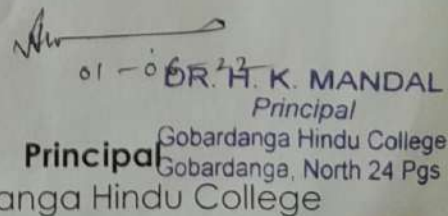 01-06-22
DR. H. K. MANDAL
Principal
Gobardanga Hindu College
Principal
Gobardanga, North 24 Pgs
anga Hindu College